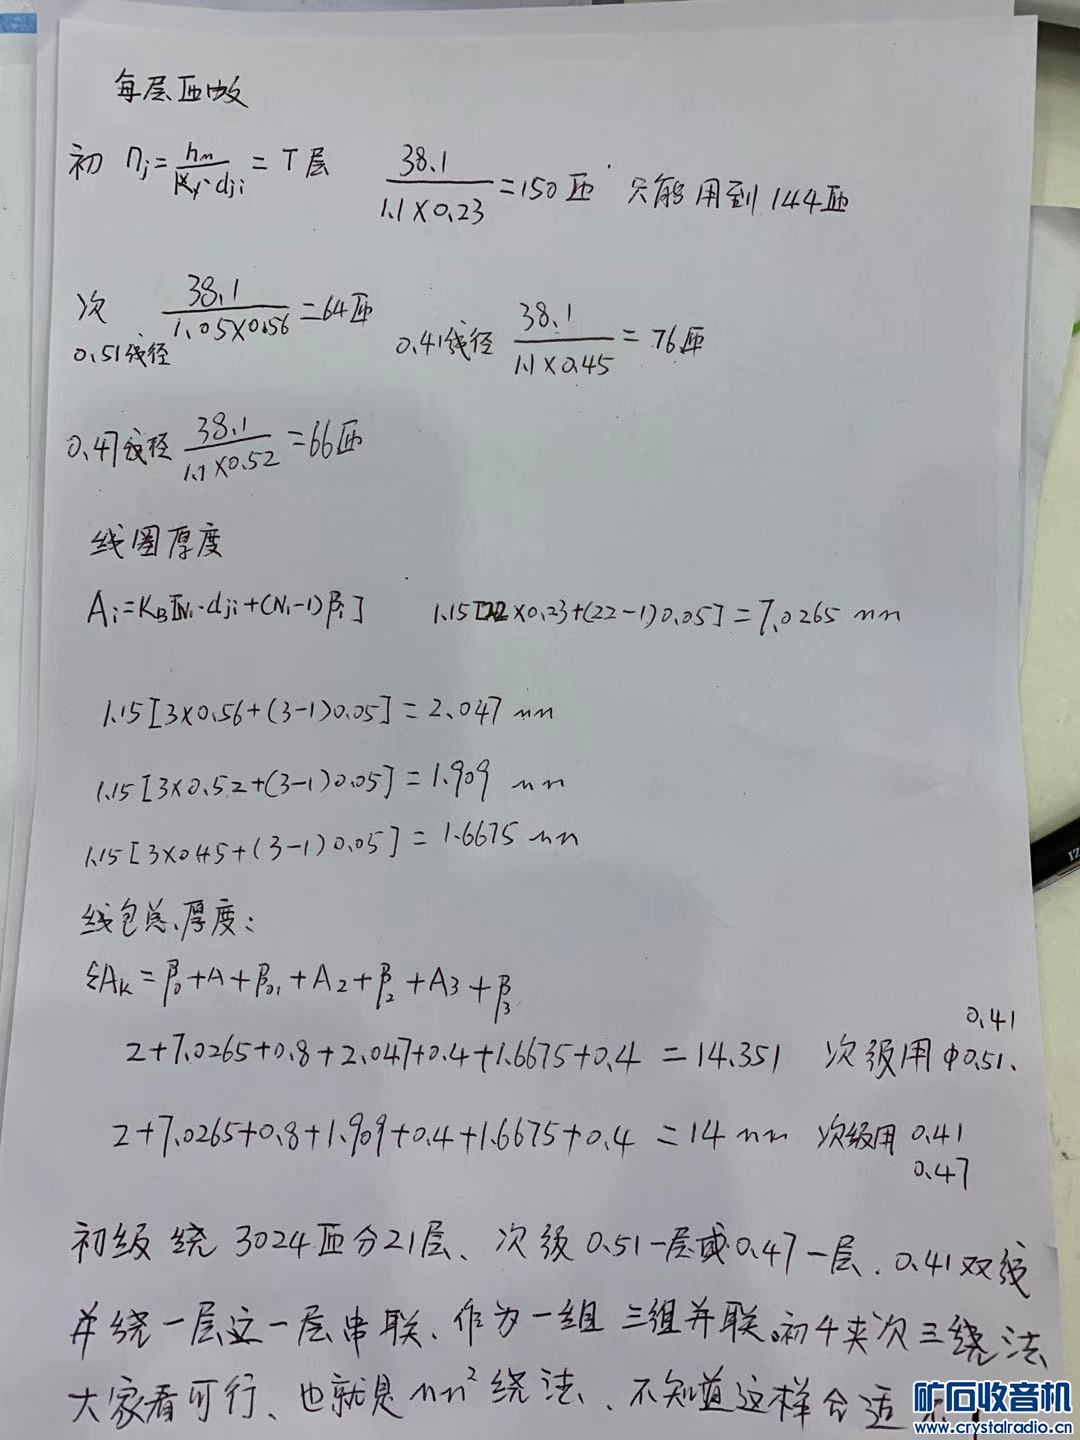 每层匝数
初 nj = hm / (Ky·dji) = T层 38.1 / (1.1×0.23) = 150匝 只能用到144匝
次 38.1 / (1.05×0.56) = 64匝
0.51线径 0.41线径 38.1 / (1.1×0.45) = 76匝
0.47线径 38.1 / (1.1×0.52) = 66匝
线圈厚度
Ai=KB[Ni·dji+(Ni-1)βi] 1.15[22×0.23+(22-1)0.05]=7.0265 mm
1.15[3×0.56+(3-1)0.05]=2.047 mm
1.15[3×0.52+(3-1)0.05]=1.909 mm
1.15[3×0.45+(3-1)0.05]=1.6675 mm
线包总厚度:
ΣAK=β0+A+β01+A2+β2+A3+β3
0.41
2+7.0265+0.8+2.047+0.4+1.6675+0.4=14.351 次级用φ0.51、
2+7.0265+0.8+1.909+0.4+1.6675+0.4=14mm 次级用 0.41
0.47
初级绕3024匝分21层、次级0.51一层或0.47一层、0.41双线
并绕一层这一层串联、作为一组 三组并联。初4夹次三绕法
大家看可行、也就是mm²绕法、不知道这样合适
矿石收音机
www.crystalradio.cn